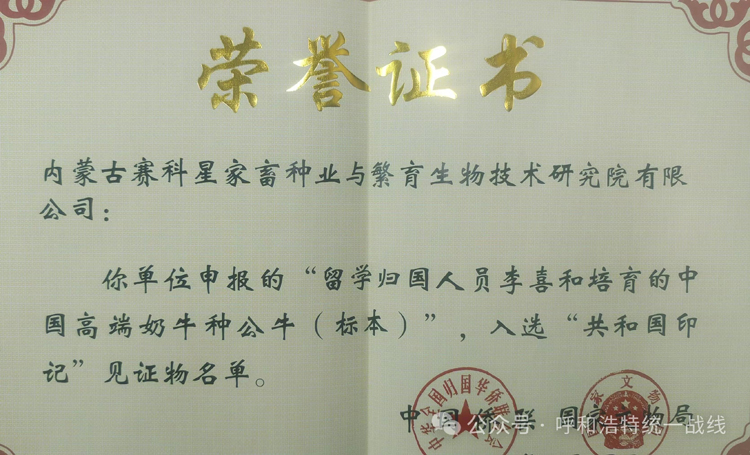 荣誉证书
内蒙古赛科星家畜种业与繁育生物技术研究院有限
公司：
你单位申报的“留学归国人员李喜和培育的中
国高端奶牛种公牛（标本）”，入选“共和国印
记”见证物名单。
中国侨联 国家文物局
中华全国归国华侨联合会
公众号·呼和浩特统一战线